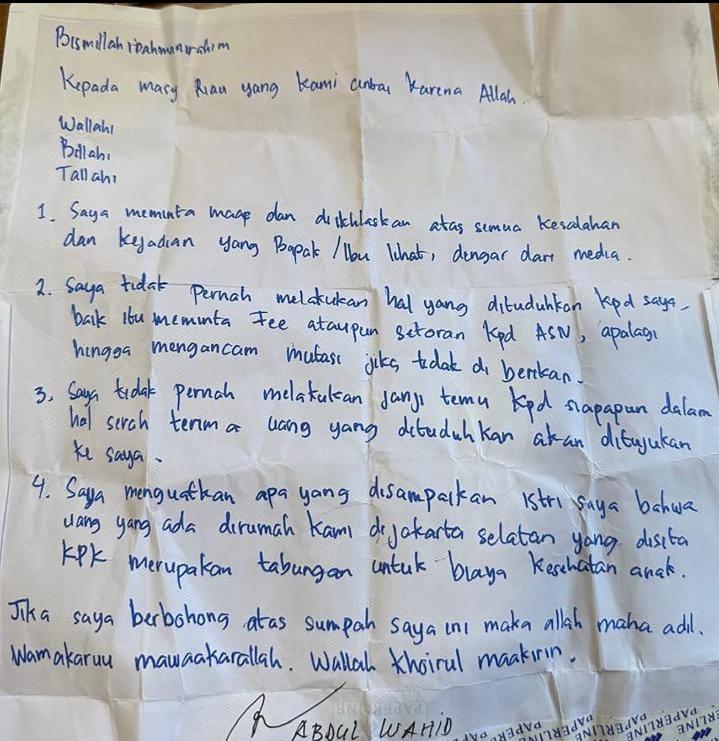 Bismillah irrahmanirrahim
Kepada masy Riau yang kami cintai karena Allah.
Wallahi
Billahi
Tallahi
1. Saya meminta maaf dan diikhlaskan atas semua kesalahan
dan kejadian yang Bapak/Ibu lihat, dengar dari media.
2. Saya tidak pernah melakukan hal yang dituduhkan kpd saya
baik itu meminta Fee ataupun setoran kpd ASN, apalagi
hingga mengancam mutasi jika tidak di berikan.
3. Saya tidak pernah melakukan janji temu kpd siapapun dalam
hal serah terima uang yang dituduhkan akan ditujukan
ke saya.
4. Saya menguatkan apa yang disampaikan istri saya bahwa
uang yang ada dirumah kami dijakarta selatan yang disita
KPK merupakan tabungan untuk biaya kesehatan anak.
Jika saya berbohong atas sumpah saya ini maka allah maha adil.
Wamakaruu mawaakarallah. Wallah khoirul maakirin.
ABDUL WAHID
PAPERLINE PAPERLINE PAPERLINE PAPERLINE